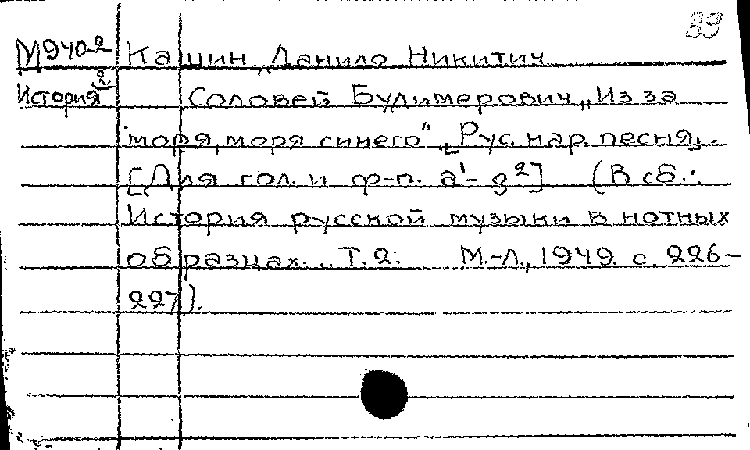 39
М940-2 Кашин, Данило Никитич
История 2 Соловей Будимерович „Из за
моря, моря синего" [Рус. нар. песня].
[Для гол. и ф-п. a¹- g²] (В сб.:
История русской музыки в нотных
образцах. Т. 2. М.-Л., 1949 с. 226-
227).